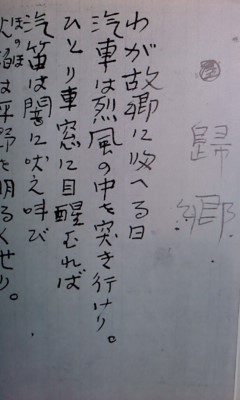 歸郷
わが故郷に帰へる日
汽車は烈風の中を突き行けり。
ひとり車窓に目醒むれば
汽笛は闇に吠え叫び
火焔は平野を明るくせり。
ほのほ